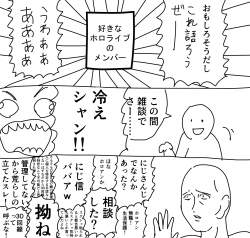 おもしろそうだし
これ語ろう
ぜー
好きな
ホロライブ
の
メンバー
うわぁぁ
ああああ
この間
雑談
でさー……
冷え
シャン!!
にじさんじ
でなんか
あった?
相談
した?
にじ信
ババアw
拗ね
管理してないん
から荒らしの
立てたスレ
30回線
って
呼ぶな!